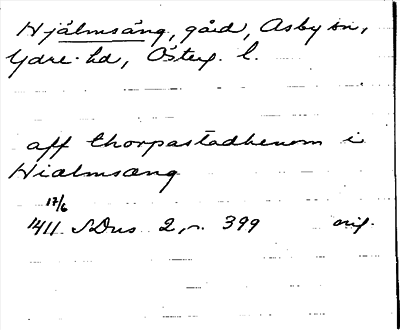 Hjälmsäng, gård, Asby sn,
Ydre hd, Österg. l.
aff thorpastadhenom i
Hialmsæng
17/6
1411 SDns 2, s. 399 orig.